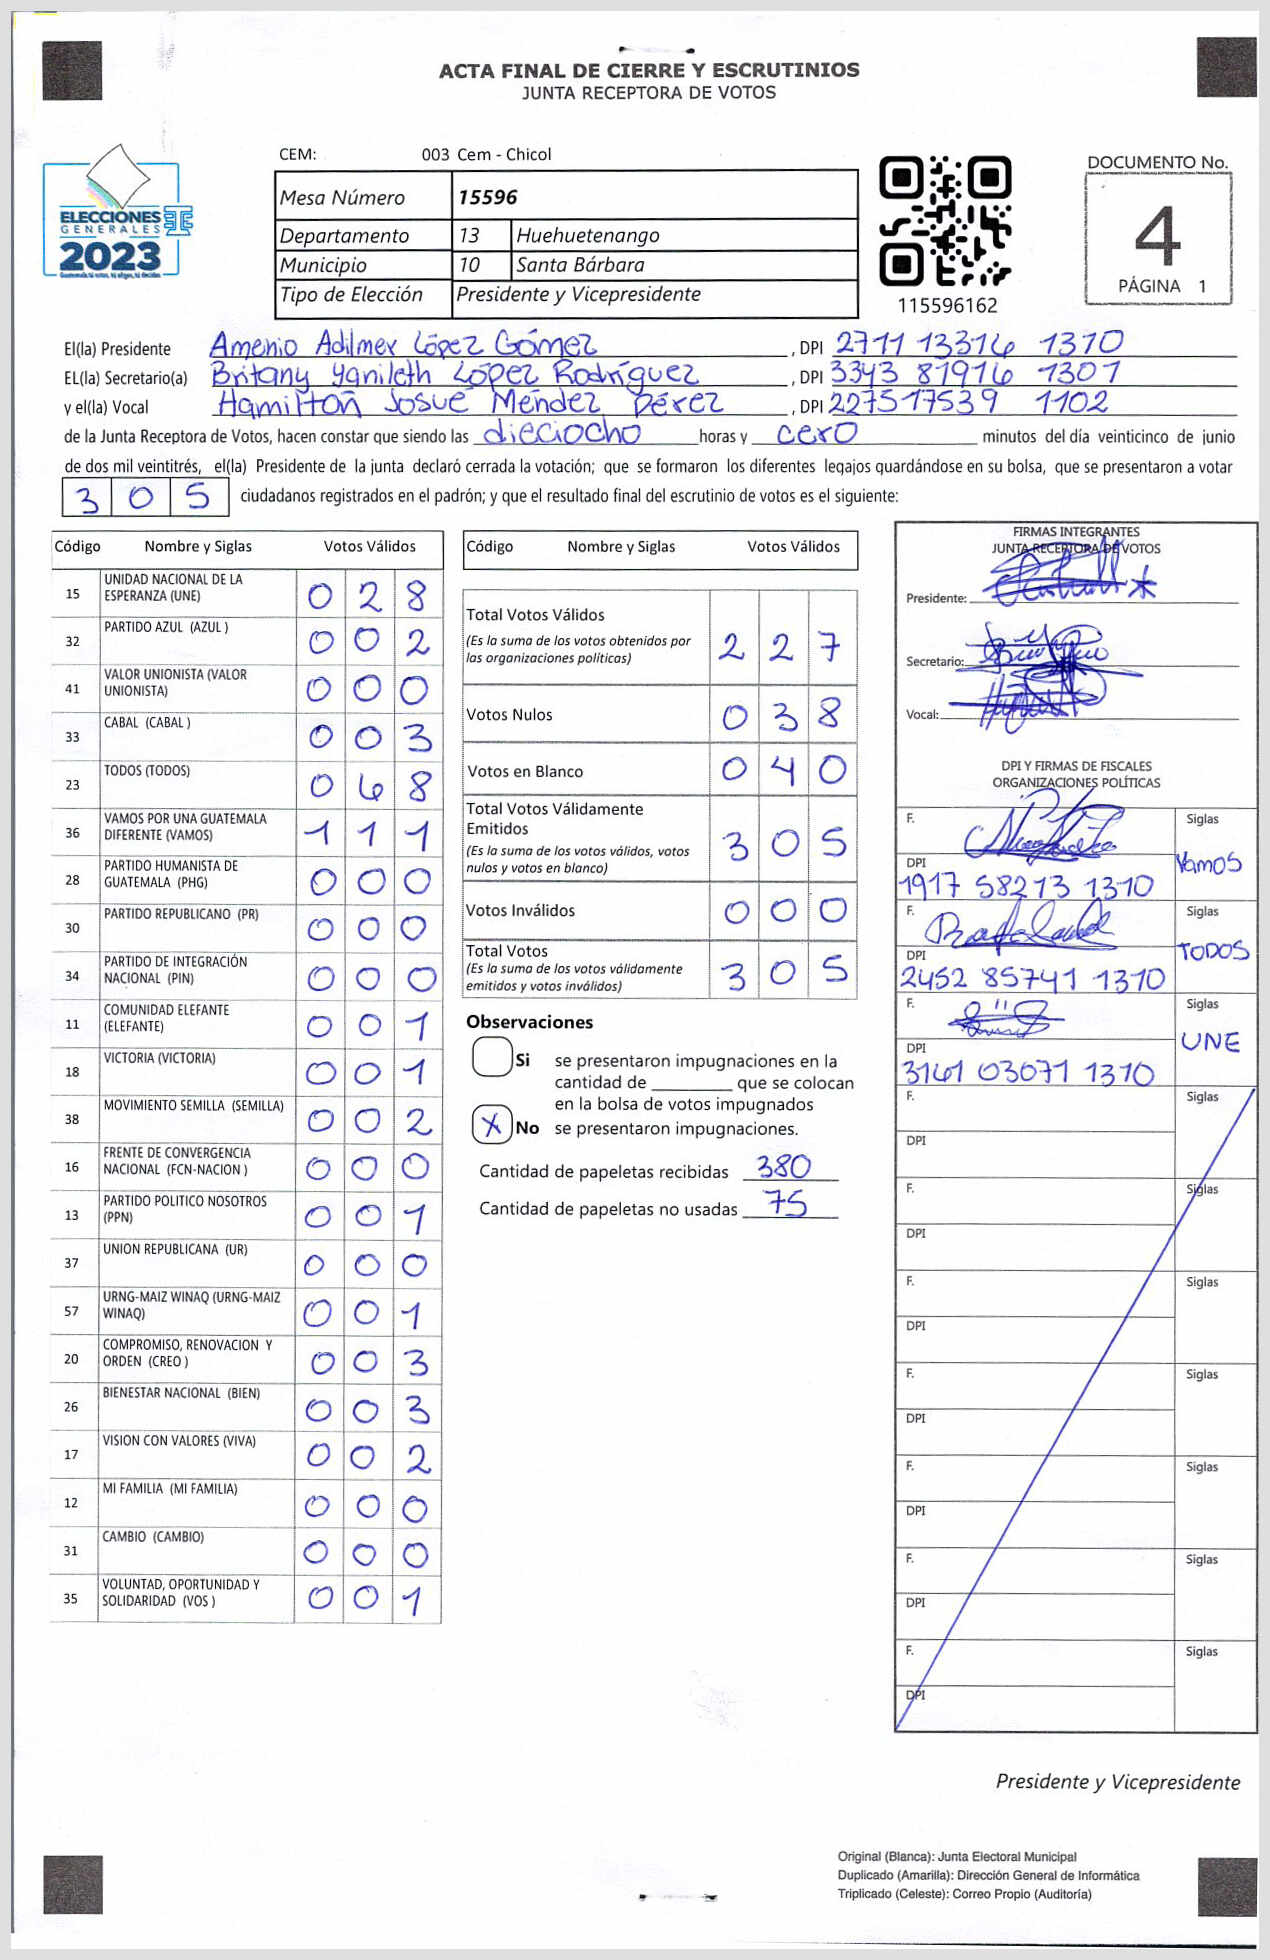 ACTA FINAL DE CIERRE Y ESCRUTINIOS
JUNTA RECEPTORA DE VOTOS
ELECCIONES
GENERALES
2023
CEM: 003 Cem - Chicol
Mesa Número 15596
Departamento 13 Huehuetenango
Municipio 10 Santa Bárbara
Tipo de Elección Presidente y Vicepresidente
115596162
DOCUMENTO No.
4
PÁGINA 1
El(la) Presidente Amenio Adilmer López Gómez , DPI 2711 13316 1310
EL(la) Secretario(a) Britany Yanileth López Rodríguez , DPI 3343 81916 1301
y el(la) Vocal Hamilton Josué Méndez Pérez , DPI 227517539 1102
de la Junta Receptora de Votos, hacen constar que siendo las dieciocho horas y cero minutos del día veinticinco de junio
de dos mil veintitrés, el(la) Presidente de la junta declaró cerrada la votación; que se formaron los diferentes legajos guardándose en su bolsa, que se presentaron a votar
305 ciudadanos registrados en el padrón; y que el resultado final del escrutinio de votos es el siguiente:
Código Nombre y Siglas Votos Válidos
15 UNIDAD NACIONAL DE LA ESPERANZA (UNE) 028
32 PARTIDO AZUL (AZUL ) 002
41 VALOR UNIONISTA (VALOR UNIONISTA) 000
33 CABAL (CABAL ) 003
23 TODOS (TODOS) 068
36 VAMOS POR UNA GUATEMALA DIFERENTE (VAMOS) 111
28 PARTIDO HUMANISTA DE GUATEMALA (PHG) 000
30 PARTIDO REPUBLICANO (PR) 000
34 PARTIDO DE INTEGRACIÓN NACIONAL (PIN) 000
11 COMUNIDAD ELEFANTE (ELEFANTE) 001
18 VICTORIA (VICTORIA) 001
38 MOVIMIENTO SEMILLA (SEMILLA) 002
16 FRENTE DE CONVERGENCIA NACIONAL (FCN-NACION ) 000
13 PARTIDO POLITICO NOSOTROS (PPN) 001
37 UNION REPUBLICANA (UR) 000
57 URNG-MAIZ WINAQ (URNG-MAIZ WINAQ) 001
20 COMPROMISO, RENOVACION Y ORDEN (CREO ) 003
26 BIENESTAR NACIONAL (BIEN) 003
17 VISION CON VALORES (VIVA) 002
12 MI FAMILIA (MI FAMILIA) 000
31 CAMBIO (CAMBIO) 000
35 VOLUNTAD, OPORTUNIDAD Y SOLIDARIDAD (VOS ) 001
Código Nombre y Siglas Votos Válidos
Total Votos Válidos 227
(Es la suma de los votos obtenidos por
las organizaciones políticas)
Votos Nulos 038
Votos en Blanco 040
Total Votos Válidamente
Emitidos 305
(Es la suma de los votos válidos, votos
nulos y votos en blanco)
Votos Inválidos 000
Total Votos 305
(Es la suma de los votos válidamente
emitidos y votos inválidos)
Observaciones
Si se presentaron impugnaciones en la
cantidad de ________ que se colocan
en la bolsa de votos impugnados
X No se presentaron impugnaciones.
Cantidad de papeletas recibidas 380
Cantidad de papeletas no usadas 75
FIRMAS INTEGRANTES
JUNTA RECEPTORA DE VOTOS
Presidente:
Secretario:
Vocal:
DPI Y FIRMAS DE FISCALES
ORGANIZACIONES POLÍTICAS
F. Siglas
Vamos
DPI
1917 58273 1310
F. Siglas
TODOS
DPI
2452 85741 1310
F. Siglas
UNE
DPI
3161 03071 1310
F. Siglas
DPI
F. Siglas
DPI
F. Siglas
DPI
F. Siglas
DPI
F. Siglas
DPI
F. Siglas
DPI
F. Siglas
DPI
Presidente y Vicepresidente
Original (Blanca): Junta Electoral Municipal
Duplicado (Amarilla): Dirección General de Informática
Triplicado (Celeste): Correo Propio (Auditoría)